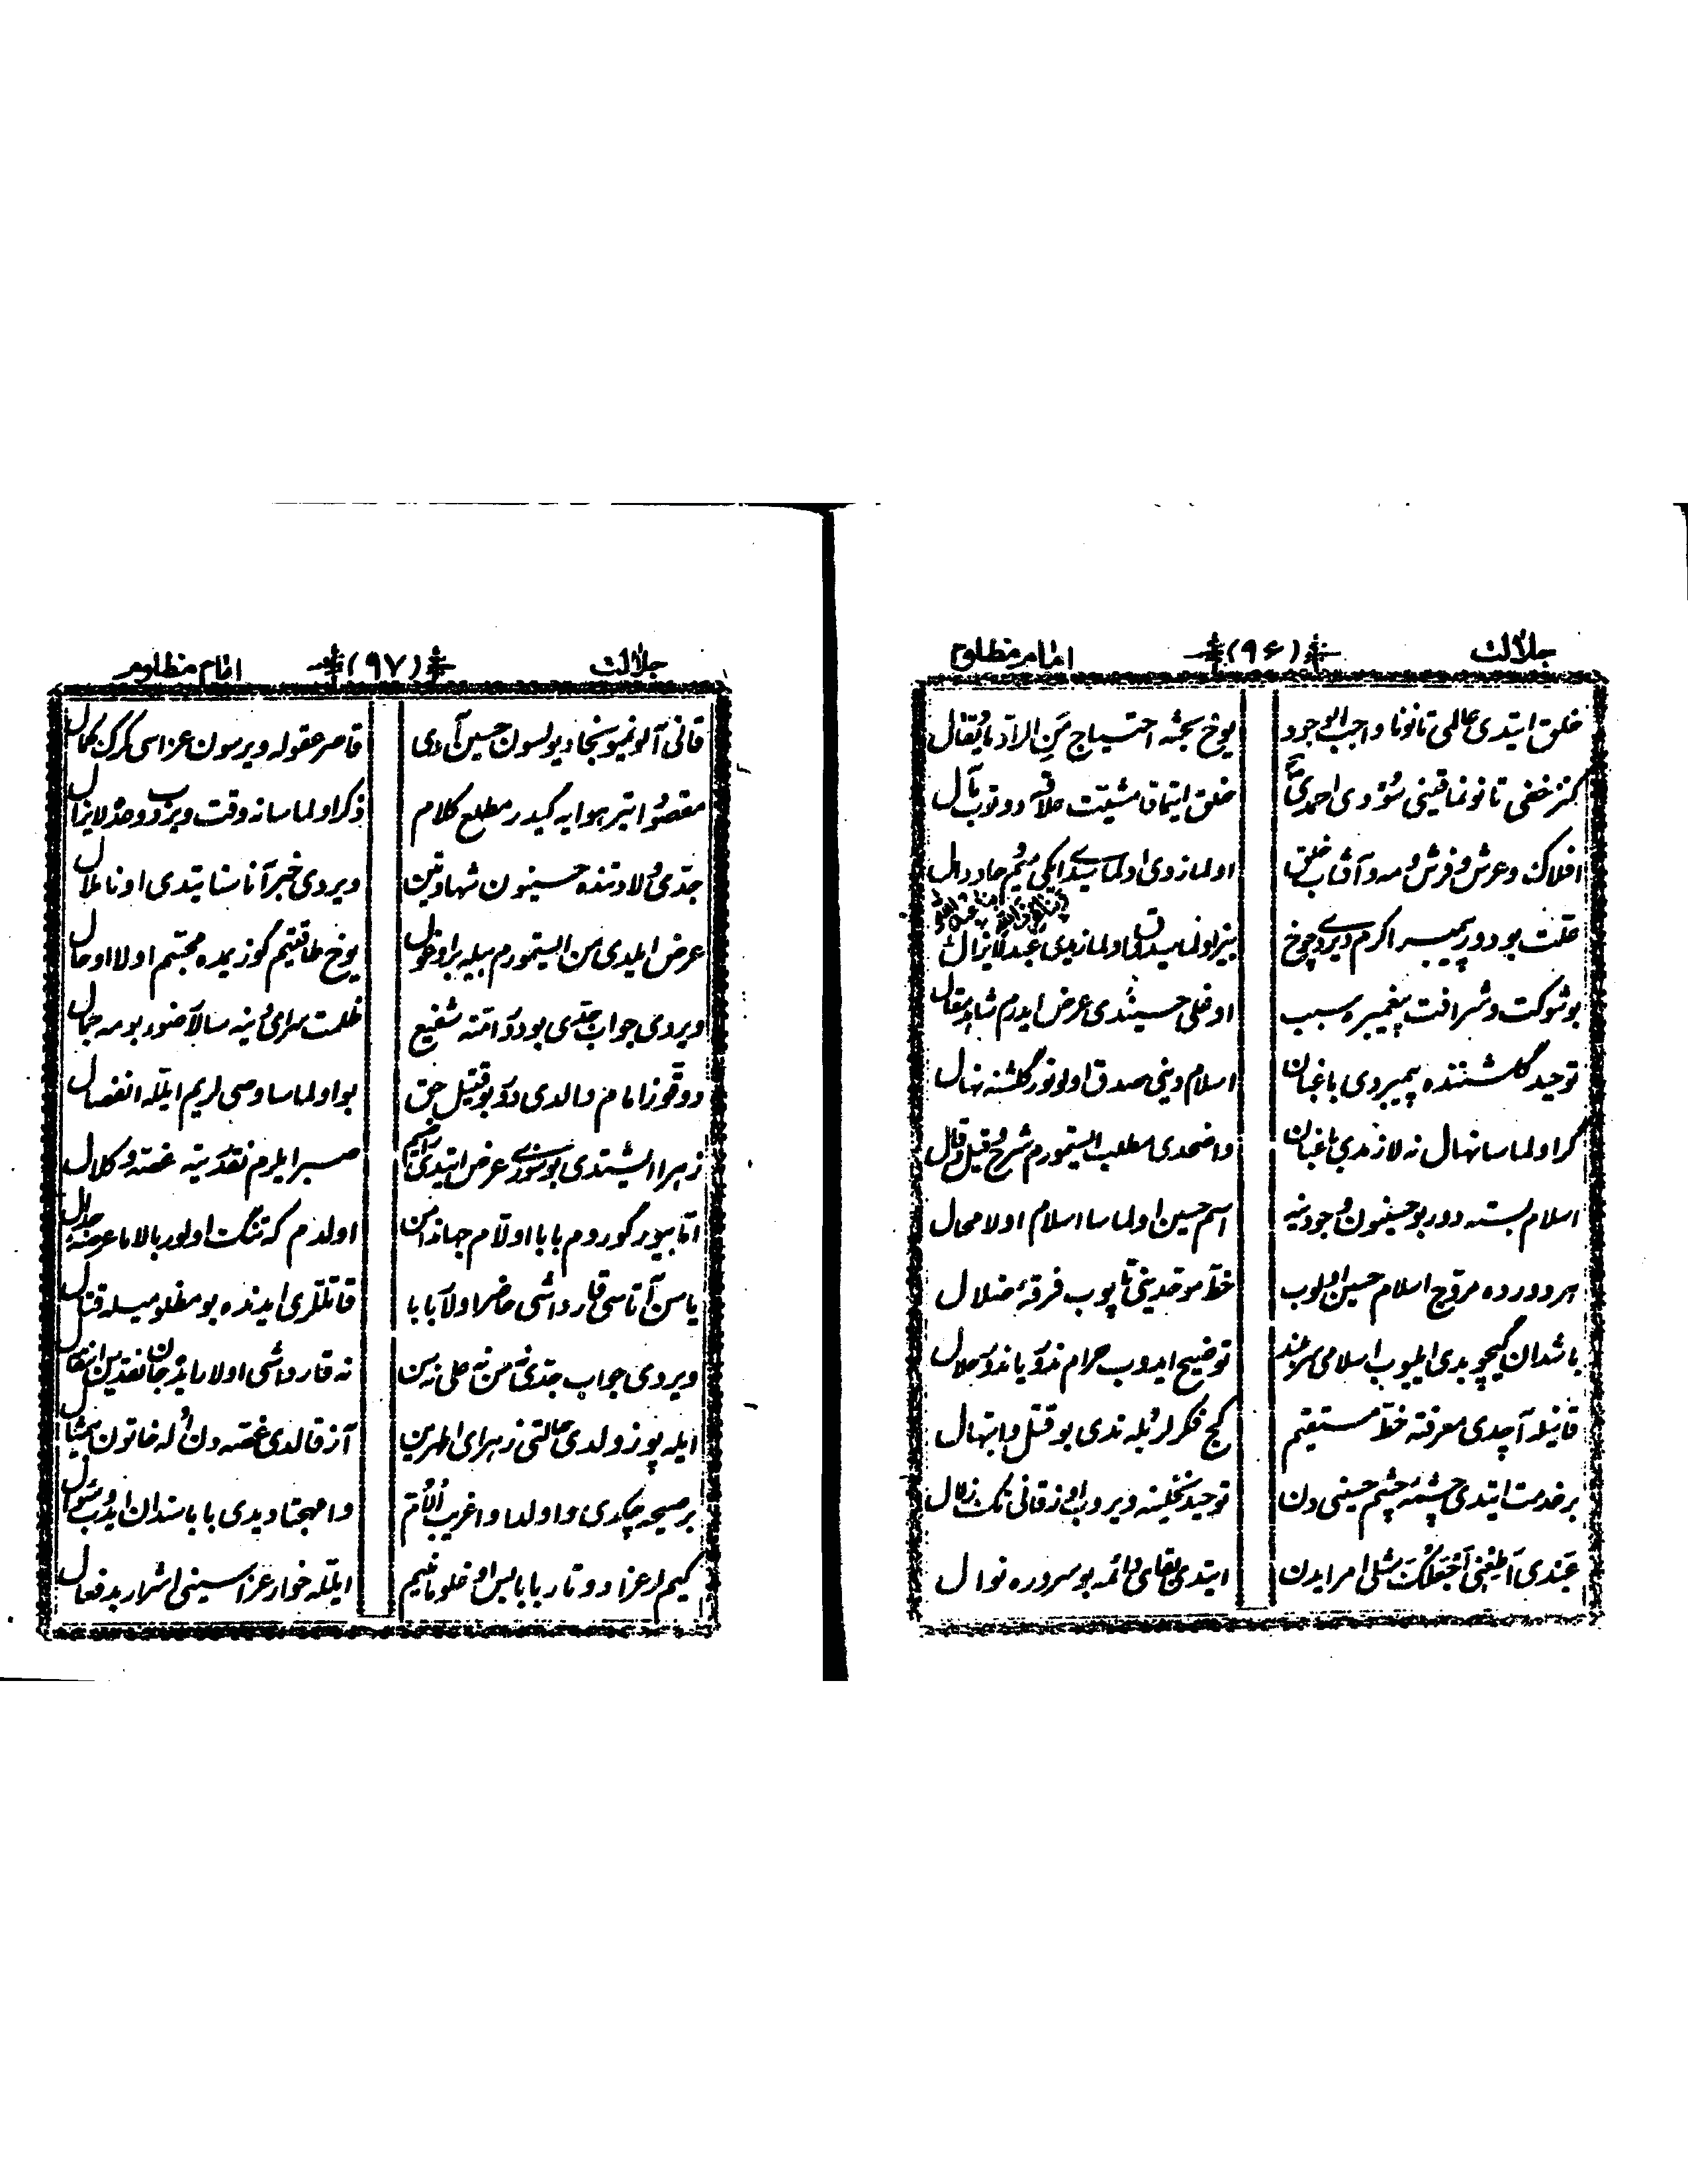 جلالت (۹۶) امام مظلوم
خلق ایتدی عالمی تانونا واجب الوجود یوخ بحثه احتیاج مَنِ الرّاد مایُقال
کنز خفی تانونماقینی سؤدی احمدی خلق ایتماقا مشیّت خلاقه دوتوب مآل
افلاک و عرش و فرش و مه و آفتاب خلق اولمازدی اولماسیدی ایکی میم حا و دال
علّت بودور پیمبر اکرم دیردی چوخ بیز اولماسیدق اولمازیدی عبد لایزال
بو شوکت و شرافت پیغمبره سبب اوغلی حسیندی عرض ایدرم شاهد مقال
توحید گلشننده پیمبردی باغبان اسلام دینی صدق اولونور گلشنه نهال
گر اولماسا نهال نه لازمدی باغبان واضحدی مطلب ایستمورم شرح و قیل و قال
اسلام بسته دور بو حسینون وجودینه اسم حسین اولماسا اسلام اولا محال
هر دورده مروّج اسلام حسین اولوب خطّ موحّدینی تاپوب فرقهٔ ضلال
باشدان گیچوبدی ایلیوب اسلامی سربلند توضیح ایدوب حرام ندوْ یا ندوْ حلال
قانیله آچدی معرفته خطّ مستقیم کج فکرلر بُله ندی بو قتل و ابتهال
بر خدمت ایتدی چشمهٔ چشم حسینی دن توحید نخلینه ویروب اوز قانی تک زلال
عَبْدی اَطِعْنی اَجْعَلُکَ مثلی امر ایدن ایتدی بقای دائمه بو سروره نوال
جلالت (۹۷) امام مظلوم
قانی آلونمیوسنجا دیولسون حسین آدی قاصر عقوله ویرسون عزاسی گرک کمال
مقصوْ ایتیر هوایه گیدر مطلع کلام ذکر اولماسا نه وقت ویروب وعدْ لایزال
جدّی ولادتنده حسینون شهادتین ویردی خبر آناسنا یتدی اونا ملال
عرض ایلدی من ایستمورم بیله بر اوغول یوخ طاقتیم گوزیمده مجسّم اولا او حال
ویردی جواب جدّی بودوْ امّته شفیع ظلمت سرای دینه سالا ضوء بو مه جمال
دوقّوز امام والدی دوْ بو قتیل حق بو اولماسا وصی لریم ایلّه انفصال
زهرا ایشتدی بو سوزی عرض ایتدی راضیم صبر ایلرم نقدْ یته غصّه و کلال
امّا بیویر گوروم بابا اولّام جهاندا من اولدم که تنگ اولور بالاما عرصهٔ جدال
یا سن آتاسی قارداشی حاضر اولا بابا قاتللری ایدنده بو مظلومیله قتال
ویردی جواب جدّی نه من نه علی نه سن نه قارداشی اولار ایدْ جان نقدین انتقال
ایله پوزولدی حالتی زهرای اطهرین آز قالدی غصّه دن اُله خاتون بیمثال
بر صیحه چکدی وا ولدا وا غریب الاُمّ وا مهجتا دیدی بابا سندان ایدوب سؤال
کیملر عزا دوتار بابا بس اوغلوما نیم ایلّه خوار عزاسینی اشرار بد فعال